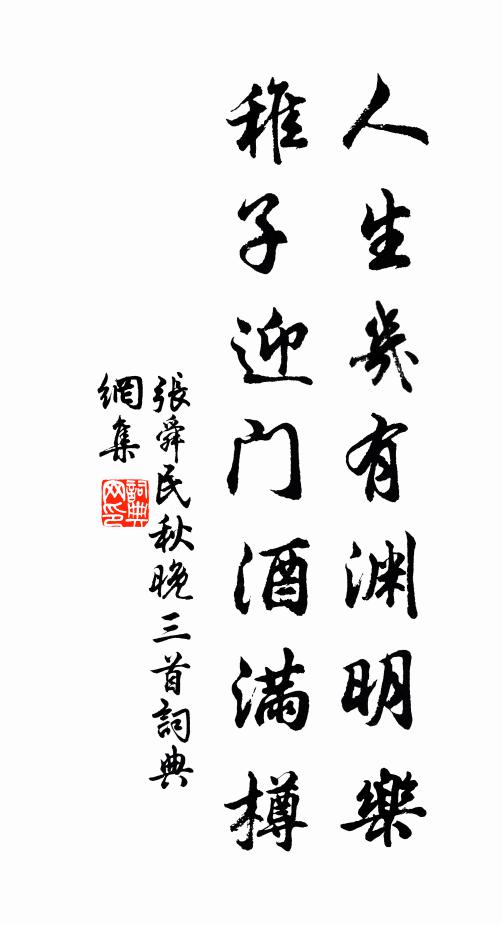 人生幾有渊明樂
稚子迎门酒满樽
張舜民秋晚三首詞典
網集
詞典網印